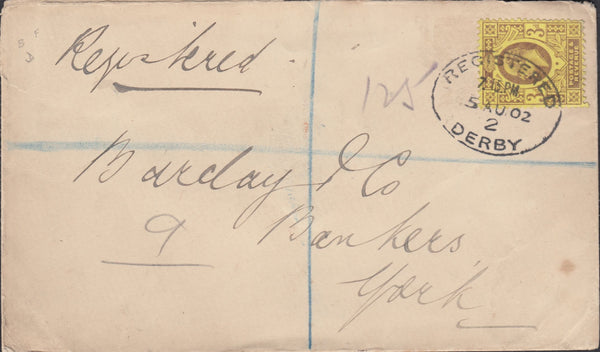 Registered
125
REGISTERED
7.15 PM
5 AU 02
2
DERBY
Barclay & Co
9
Bankers
York